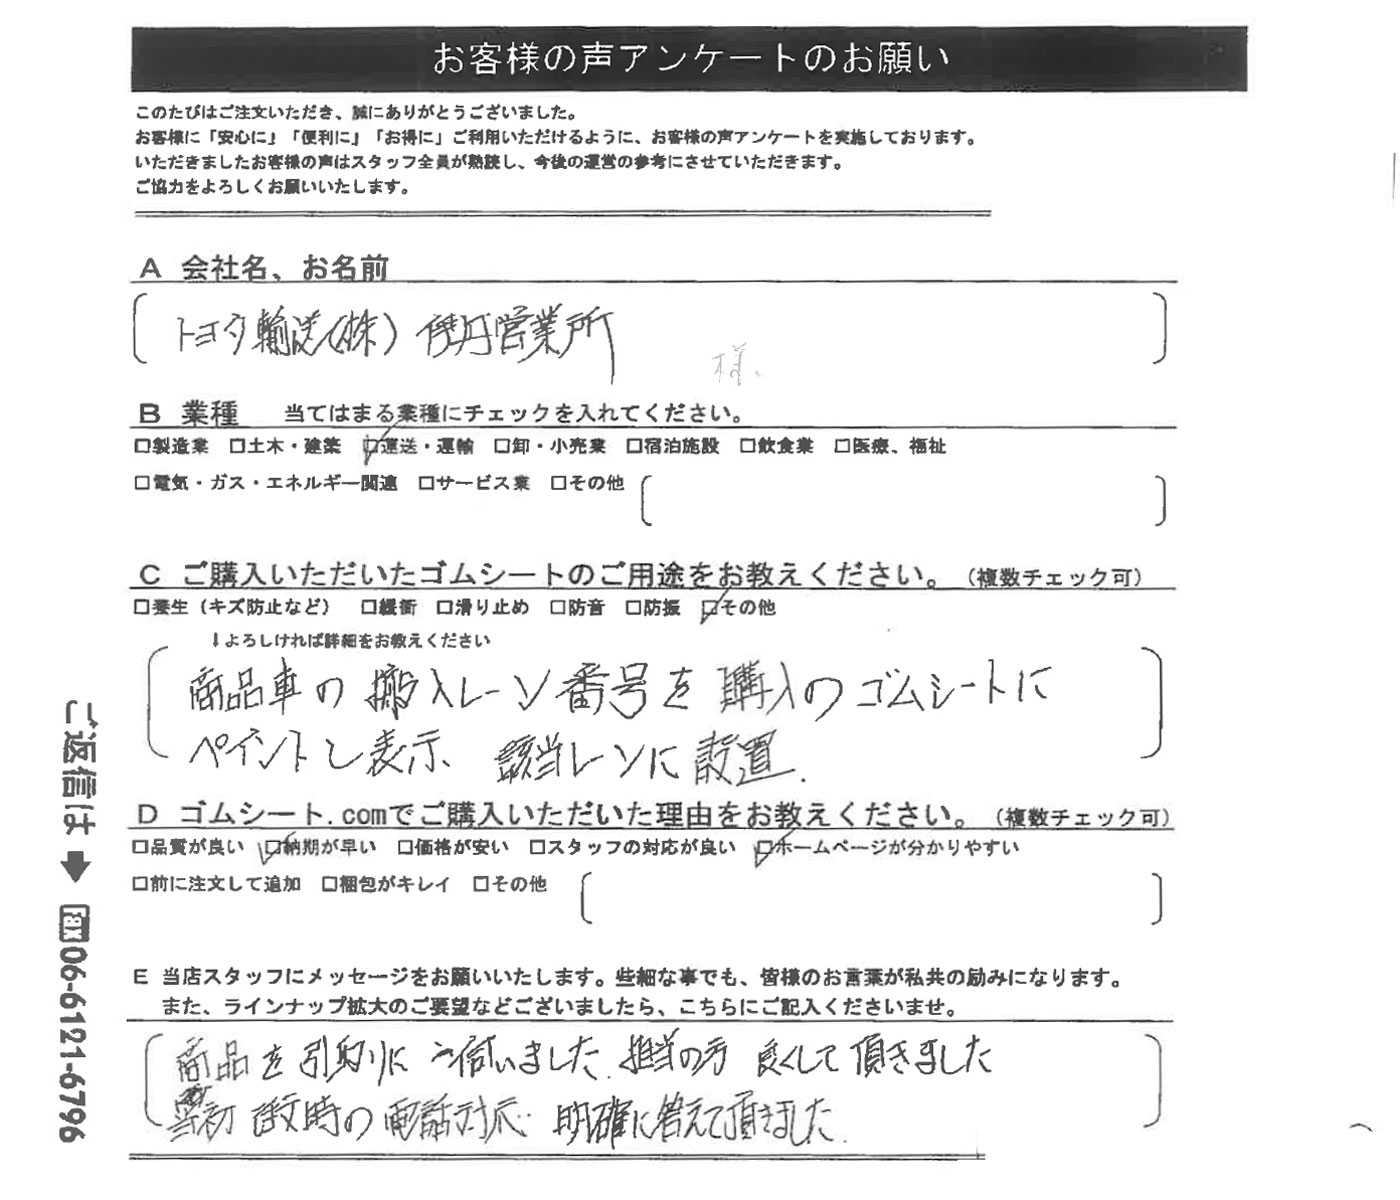 お客様の声アンケートのお願い
このたびはご注文いただき、誠にありがとうございました。
お客様に「安心に」「便利に」「お得に」ご利用いただけるように、お客様の声アンケートを実施しております。
いただきましたお客様の声はスタッフ全員が熟読し、今後の運営の参考にさせていただきます。
ご協力をよろしくお願いいたします。
A 会社名、お名前
トヨタ輸送(株) 伊丹営業所
様、
B 業種 当てはまる業種にチェックを入れてください。
□製造業 □土木・建築 ☑運送・運輸 □卸・小売業 □宿泊施設 □飲食業 □医療、福祉
□電気・ガス・エネルギー関連 □サービス業 □その他
C ご購入いただいたゴムシートのご用途をお教えください。(複数チェック可)
□養生(キズ防止など) □緩衝 □滑り止め □防音 □防振 ☑その他
↓よろしければ詳細をお教えください
商品車の搬入レーン番号を購入のゴムシートに
ペイントし表示、該当レーンに設置.
D ゴムシート.comでご購入いただいた理由をお教えください。(複数チェック可)
□品質が良い ☑納期が早い □価格が安い □スタッフの対応が良い ☑ホームページが分かりやすい
□前に注文して追加 □梱包がキレイ □その他
E 当店スタッフにメッセージをお願いいたします。些細な事でも、皆様のお言葉が私共の励みになります。
また、ラインナップ拡大のご要望などございましたら、こちらにご記入くださいませ。
商品を引取りにお伺いました.担当の方 良くして頂きました
当初 時の電話対応 明確に答えて頂きました.
ご返信は➡FAX06-6121-6796